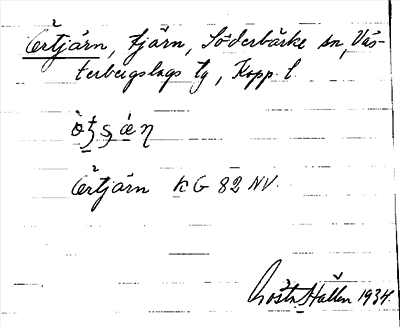 Örtjärn, tjärn, Söderbärke sn, Väs-
terbergslags tg, Kopp. l.
Örtjärn KG 82 NV.
Gösta Hallen 1934.